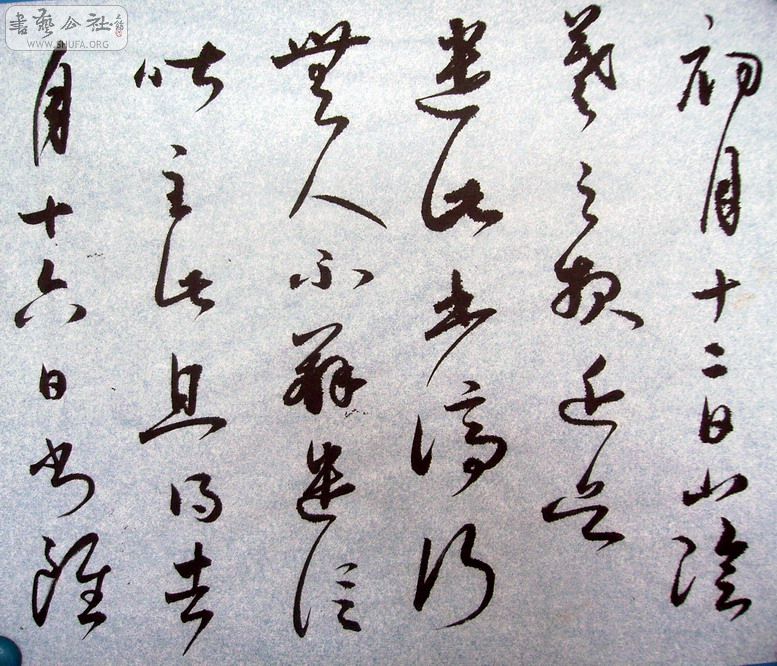 初月十二日山陰
羲之報近欲
遣此書停行
無人不辦遣信
昨至此且得去
月十六日書雖
書藝公社
WWW.SHUFA.ORG